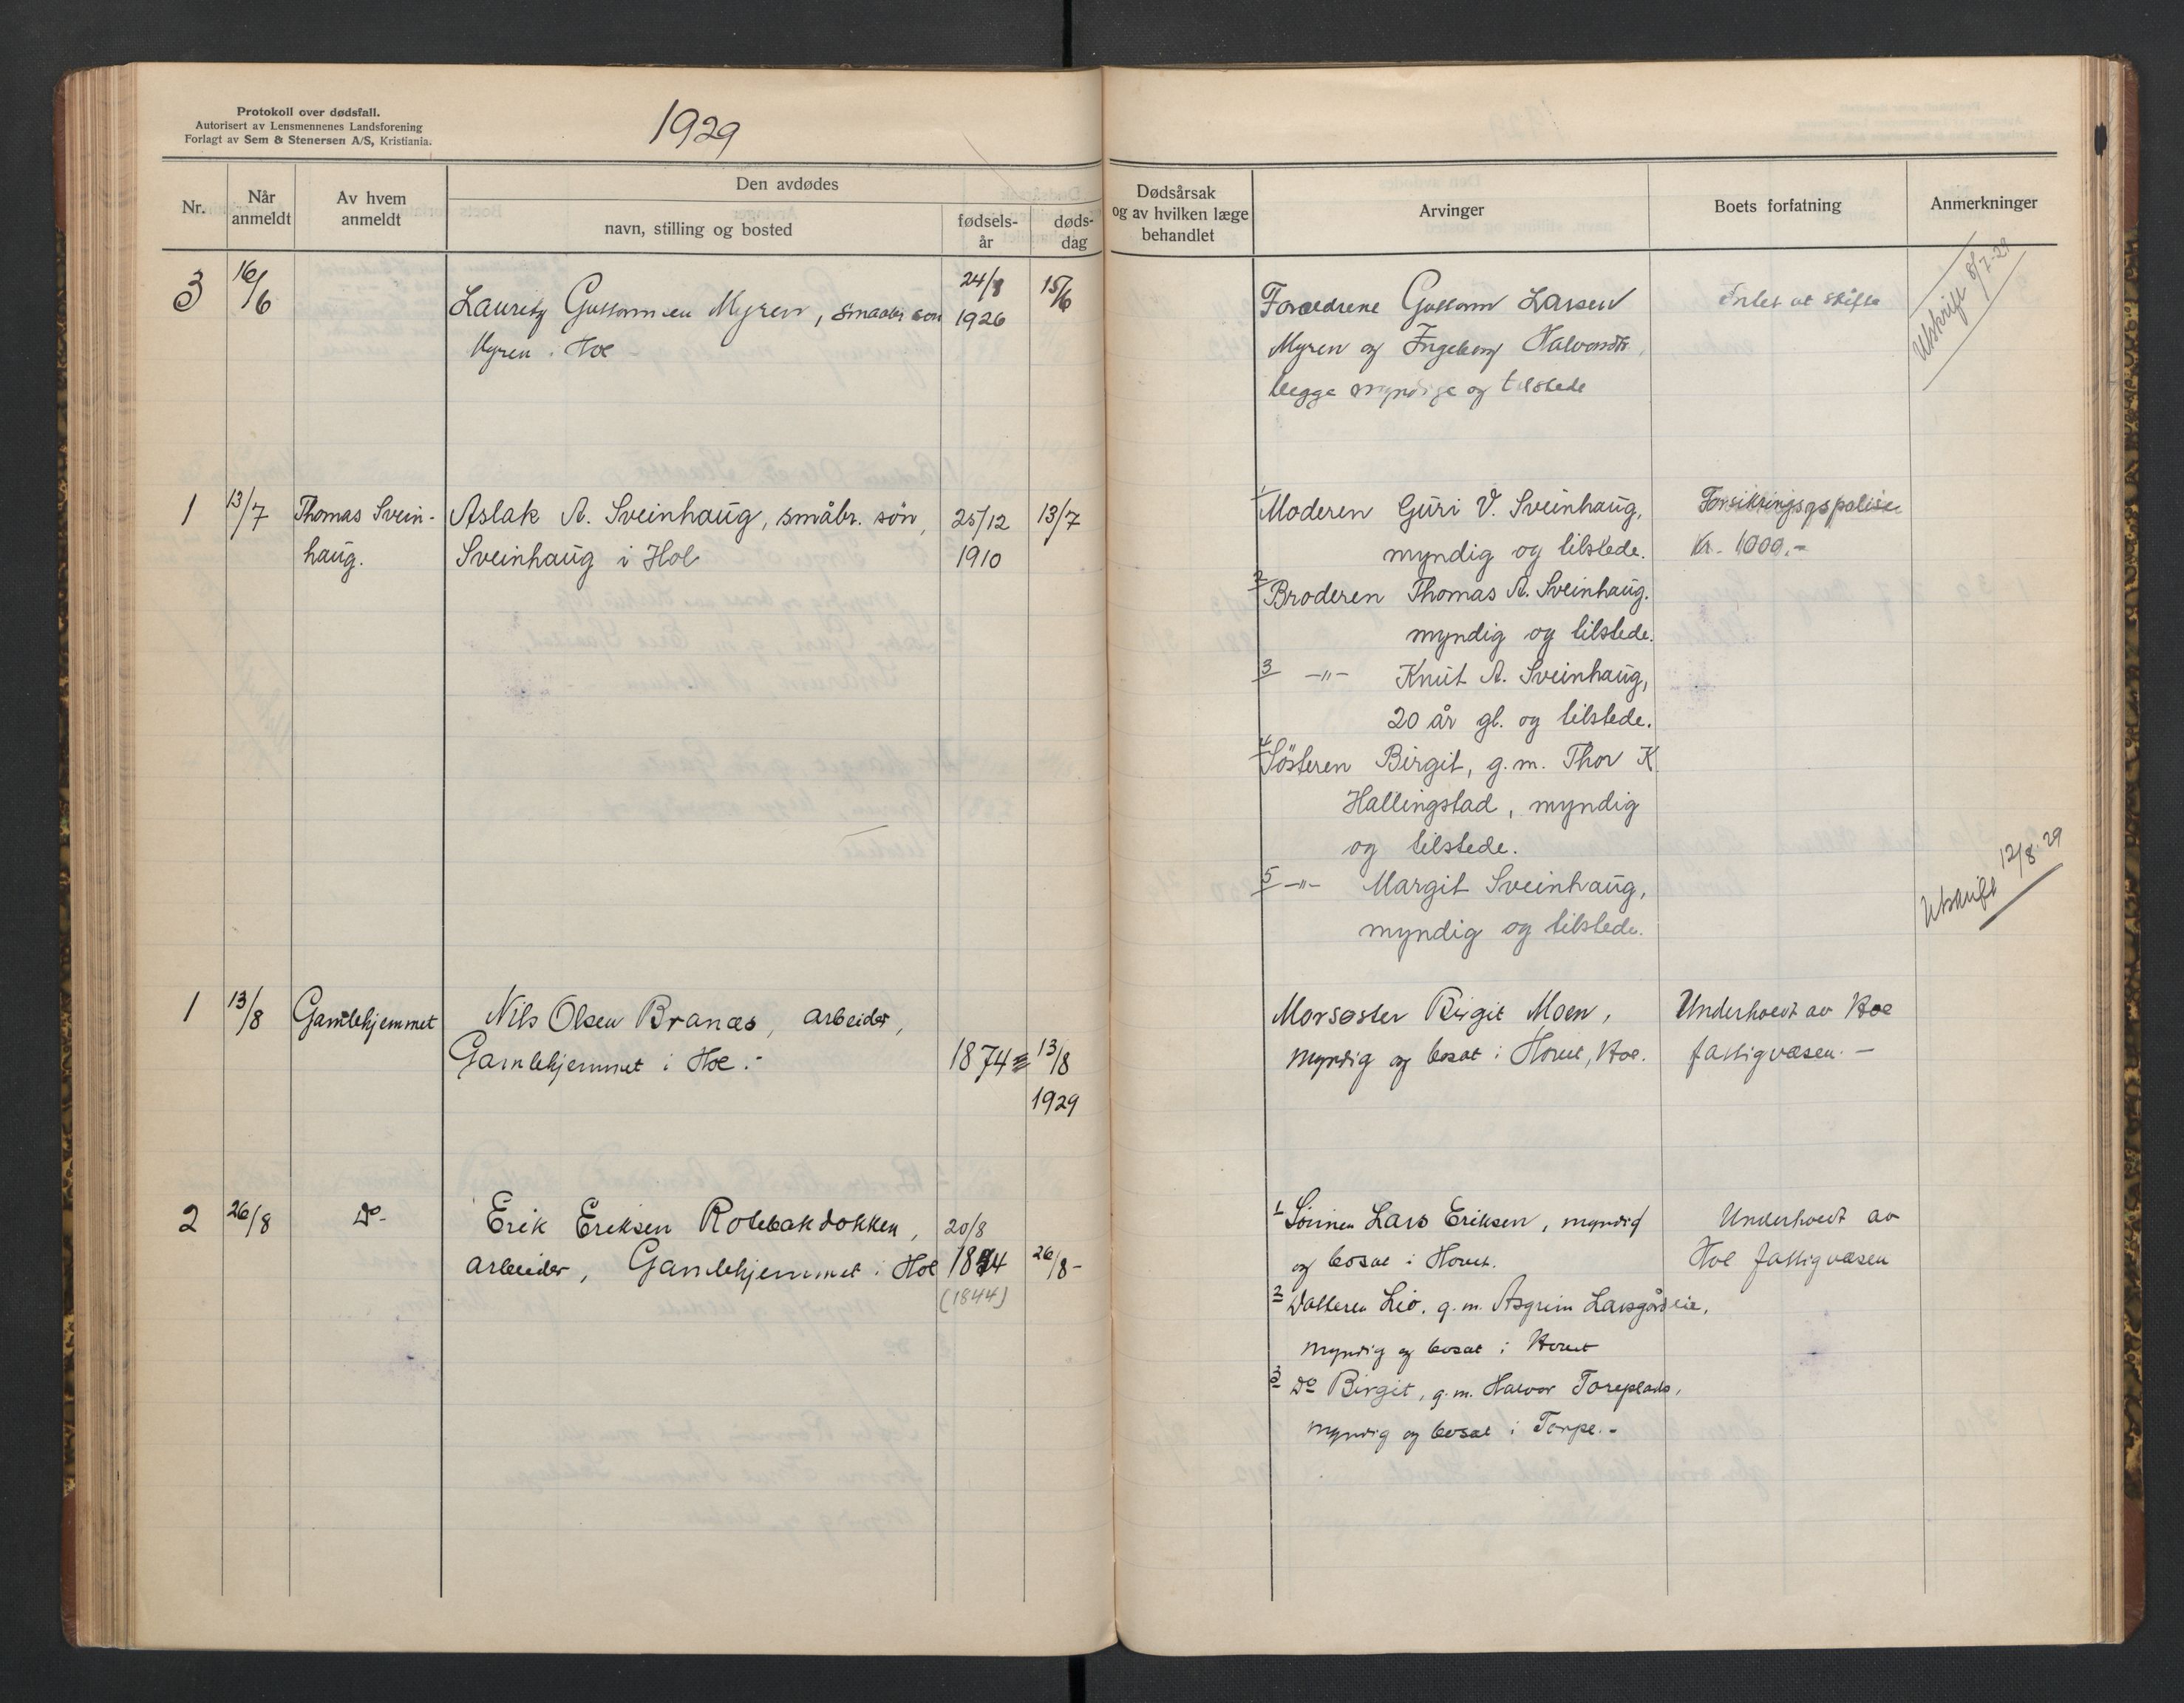 Protokoll over dødsfall.
Autorisert av Lensmennenes Landsforening
Forlagt av Sem & Stenersen A/S, Kristiania.
1929
Nr.
Når anmeldt
Av hvem anmeldt
Den avdødes
navn, stilling og bosted
fødsels-år
døds-dag
Dødsårsak
og av hvilken læge
behandlet
Arvinger
Boets forfatning
Anmerkninger
3 16/6
Lauritz Guttormsen Myren, smaabr søn 24/8 15/6
Myren i Hol 1926
Forældrene Guttorm Larsen
Myren og Ingeborg Halvorsdtr.
begge myndige og tilstede
Intet at skifte
Utskrift 8/7-29
1 13/7 Thomas Svein- Aslak A. Sveinhaug, småbr. søn, 25/12 13/7
haug. Sveinhaug i Hol 1910
1 Moderen Guri V. Sveinhaug,
myndig og tilstede.
2 Broderen Thomas A. Sveinhaug.
myndig og tilstede.
3 -"- Knut A. Sveinhaug,
20 år gl. og tilstede.
4 Søsteren Birgit, g.m. Thor K
Hallingstad, myndig
og tilstede.
5 -"- Margit Sveinhaug,
myndig og tilstede.
Forsikringsgspolise
Kr. 1000.-
Utskrift 12/8.29
1 13/8 Gamlehjemmet Nils Olsen Branæs, arbeider,
Gamlehjemmet i Hol.- 1874 13/8
1929
Morsøster Birgit Moen,
myndig og bosat i Hovet, Hol.
Underholdt av Hol
fattigvæsen. -
2 26/8 Do- Erik Eriksen Rotebakdokken, 20/8
arbeider, Gamlehjemmet i Hol 1844 26/8-
(1844)
1 Sønnen Lars Eriksen, myndig
og bosat i Hovet.
2 Datteren Liv, g.m. Asgrim Larsgårdseie,
myndig og bosat i Hovet
3 Do Birgit, g.m. Halvor Toreplads,
myndig og bosat i Torpe.-
Underholdt av
Hol fattigvæsen